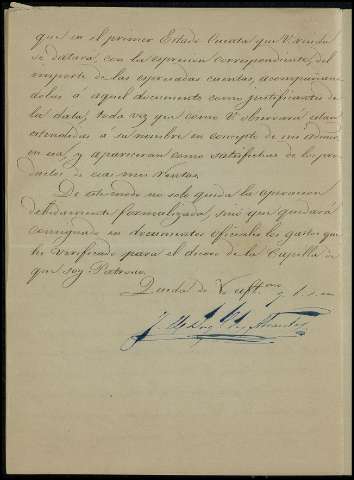 que en el primer Estado Cuenta que V. rinda
se datará, con la expresion correspondiente, del
importe de las expresadas cuentas, acompañan-
dolas á aquel documento como justificantes de
la data, toda vez que como V. observará estan
estendidas á su nombre en concepto de mi admor
en esa, y apareceran como satisfechas de los pro-
ductos de esas mis Rentas.
De este modo no solo queda la operacion
debidamente formalizada, sino que quedará
consignado en documentos oficiales los gastos que
he verificado para el decoro de la Capilla de
que soy Patrono.
Queda de V. afftmo